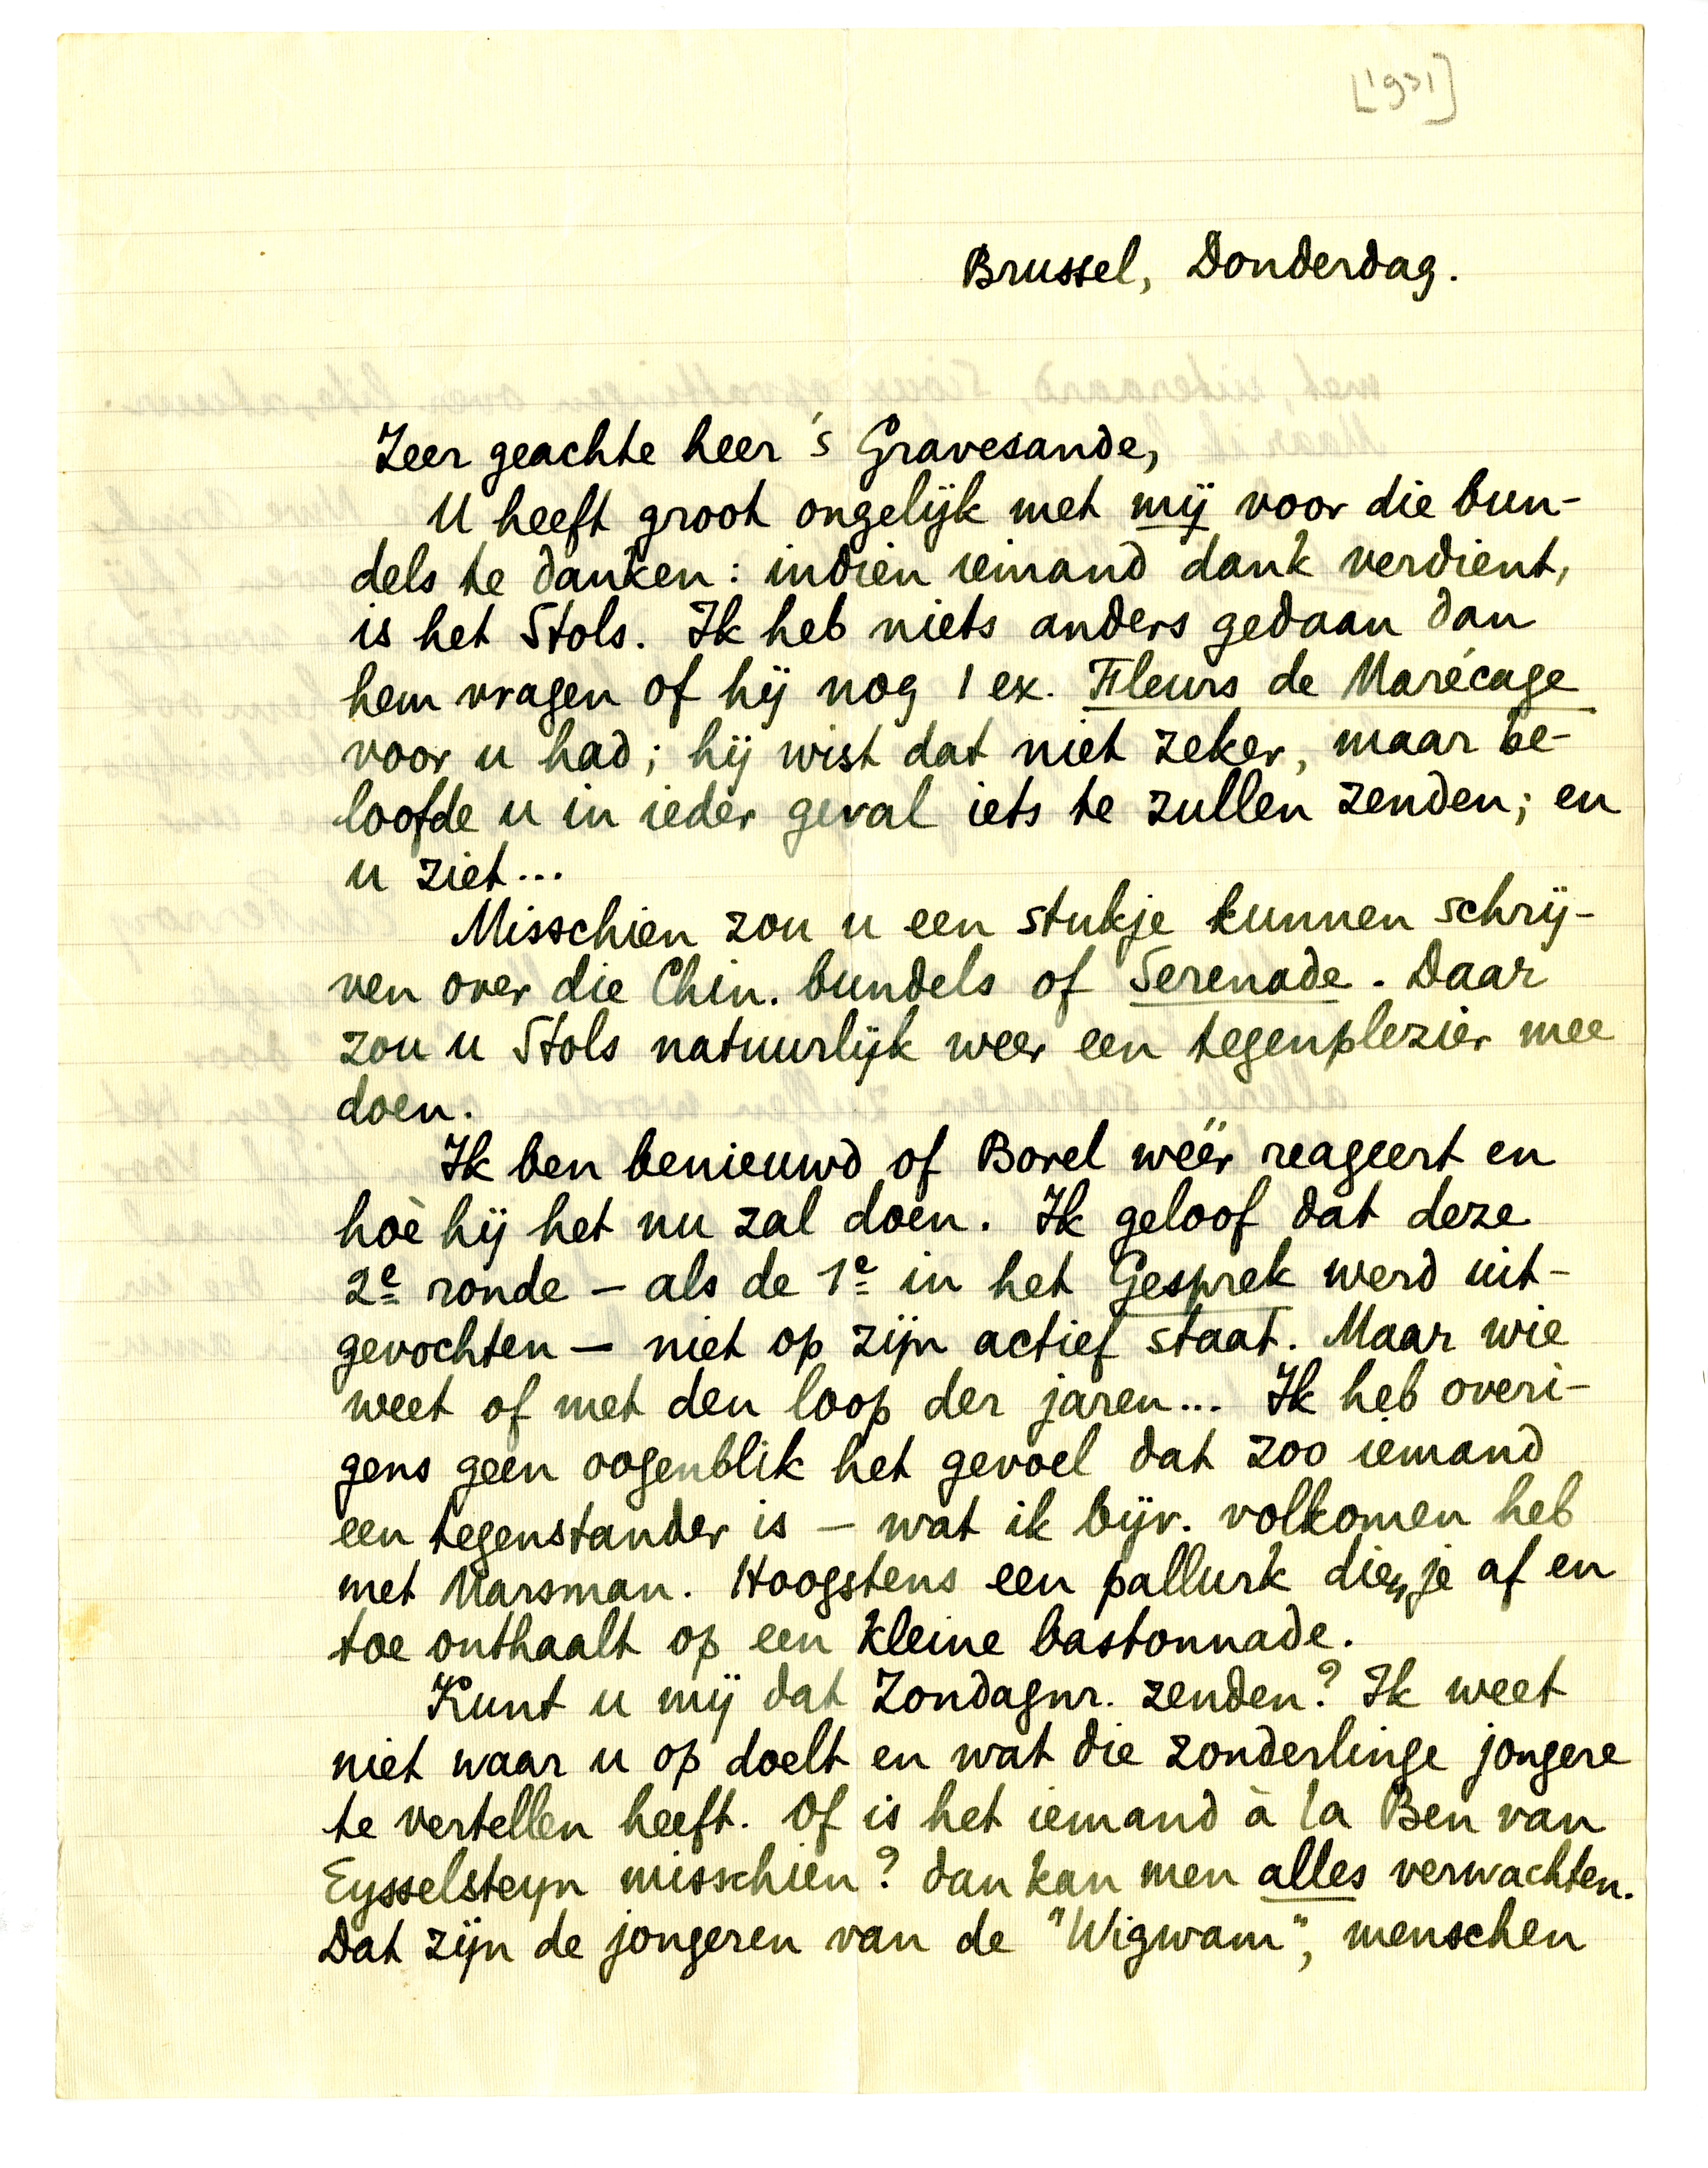 [1931]
Brussel, Donderdag.
Zeer geachte heer 's Gravesande,
U heeft groot ongelijk met mij voor die bun-
dels te danken: indien iemand dank verdient,
is het Stols. Ik heb niets anders gedaan dan
hem vragen of hij nog 1 ex. Fleurs de Marécage
voor u had; hij wist dat niet zeker, maar be-
loofde u in ieder geval iets te zullen zenden; en
u ziet...
Misschien zou u een stukje kunnen schrij-
ven over die Chin. bundels of Serenade. Daar
zou u Stols natuurlijk weer een tegenplezier mee
doen.
Ik ben benieuwd of Borel wéér reageert en
hoè hij het nu zal doen. Ik geloof dat deze
2e ronde – als de 1e in het Gesprek werd uit-
gevochten – niet op zijn actief staat. Maar wie
weet of met den loop der jaren... Ik heb overi-
gens geen oogenblik het gevoel dat zoo iemand
een tegenstander is – wat ik bijv. volkomen heb
met Marsman. Hoogstens een pallurk dien je af en
toe onthaalt op een kleine bastonnade.
Kunt u mij dat Zondagnr. zenden? Ik weet
niet waar u op doelt en wat die zonderlinge jongere
te vertellen heeft. Of is het iemand à la Ben van
Eysselsteyn misschien? dan kan men alles verwachten.
Dat zijn de jongeren van de "Wigwam", menschen